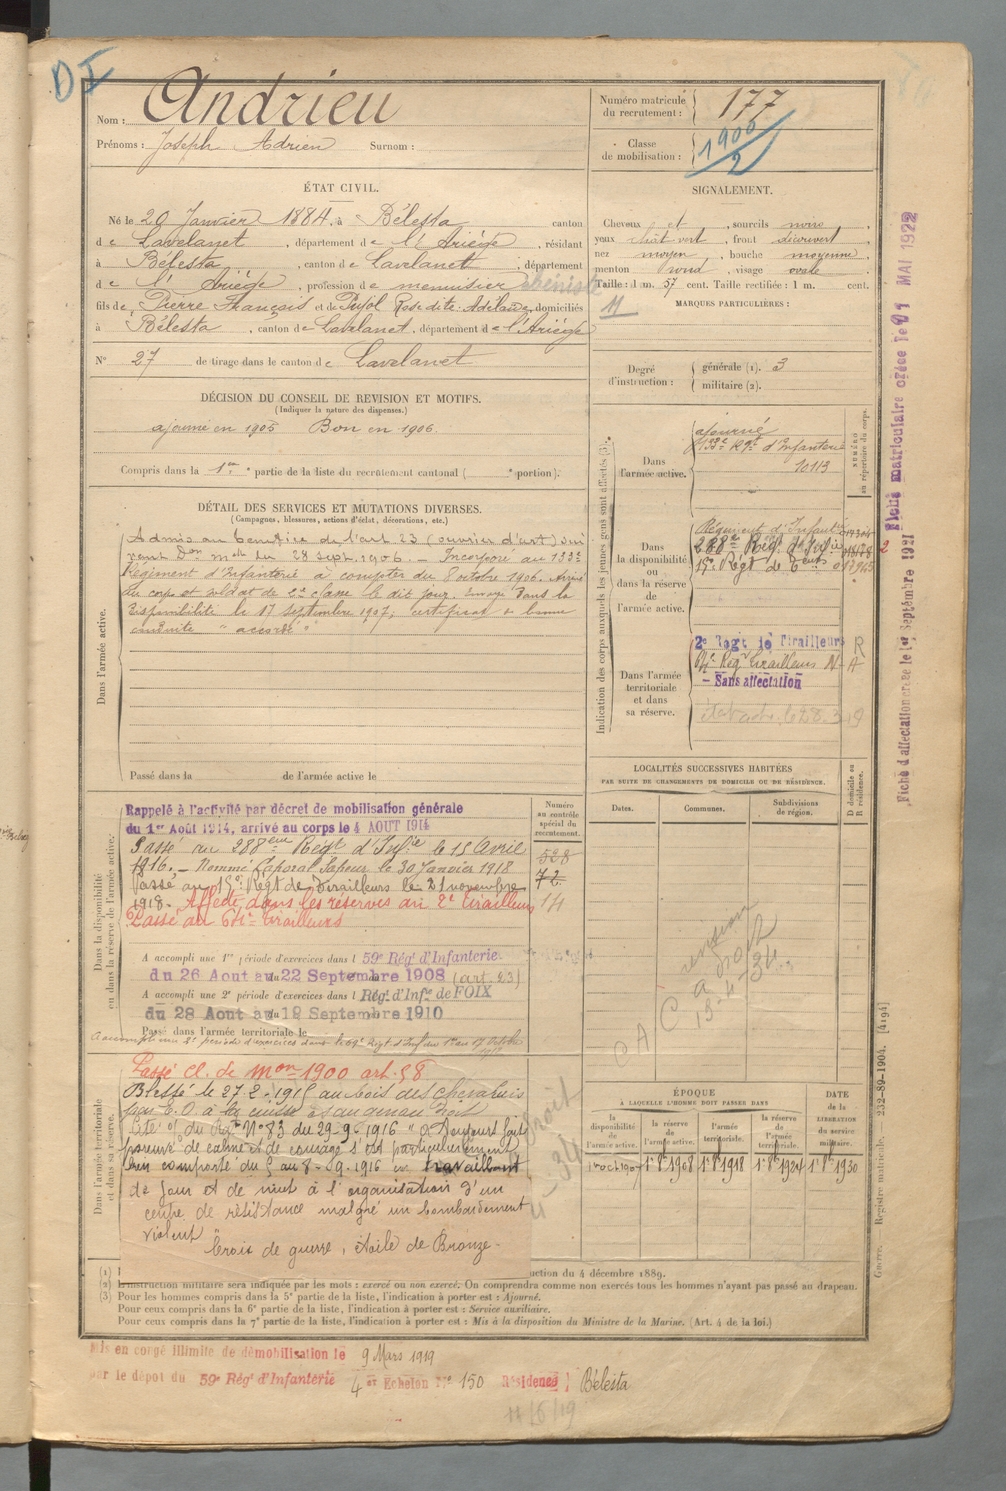 D I
Nom : Andrieu
Prénoms : Joseph Adrien Surnom :
Numéro matricule du recrutement : 177
Classe de mobilisation : 1900/2
ÉTAT CIVIL.
Né le 20 Janvier 1884, à Bélesta canton
de Lavelanet, département de l'Ariège, résidant
à Bélesta, canton de Lavelanet, département
de l'Ariège, profession de menuisier ébéniste
fils de Pierre François et de Pujol Rose dite Adélaïde, domiciliés
à Bélesta, canton de Lavelanet, département de l'Ariège
N° 27 de tirage dans le canton de Lavelanet
SIGNALEMENT.
Cheveux et, sourcils noirs,
yeux chât vert, front découvert,
nez moyen, bouche moyenne,
menton rond, visage ovale.
Taille : 1 m. 57 cent. Taille rectifiée : 1 m. cent.
MARQUES PARTICULIÈRES :
Degré d'instruction : générale (1). 3
militaire (2).
DÉCISION DU CONSEIL DE REVISION ET MOTIFS.
(Indiquer la nature des dispenses.)
ajourné en 1905 Bon en 1906.
Compris dans la 1re partie de la liste du recrutement cantonal ( e portion).
DÉTAIL DES SERVICES ET MUTATIONS DIVERSES.
(Campagnes, blessures, actions d'éclat, décorations, etc.)
Dans l'armée active.
Admis au bénéfice de l'art 23 (ouvrier d'art) sui
vant Don mle du 28 sept. 1906. — Incorporé au 133e
Régiment d'Infanterie à compter du 8 octobre 1906. Arrivé
au corps et soldat de 2e classe le dit jour. Envoyé dans la
disponibilité le 17 septembre 1907; certificat de bonne
conduite "accordé"
Passé dans la de l'armée active le
Indication des corps auxquels les jeunes gens sont affectés (3).
NUMÉRO au répertoire du corps.
Dans l'armée active. ajourné
133e Rgt d'Infanterie
10113
Dans la disponibilité ou dans la réserve de l'armée active.
Régiment d'Infant
288e Rég. d'Infie
15e Regt de
Dans l'armée territoriale et dans sa réserve.
2e Regt de Tirailleurs R
Regt Tirailleurs N-A
- Sans affectation
LOCALITÉS SUCCESSIVES HABITÉES
PAR SUITE DE CHANGEMENTS DE DOMICILE OU DE RÉSIDENCE.
Dates. Communes. Subdivisions de région. D domicile ou R résidence.
Dans la disponibilité ou dans la réserve de l'armée active.
Numéro au contrôle spécial du recrutement.
528
72
14
Rappelé à l'activité par décret de mobilisation générale
du 1er Août 1914, arrivé au corps le 4 AOUT 1914
Passé au 288eme Régt d'Infie le 15 Avril
1916. — Nommé Caporal Sapeur le 30 Janvier 1918
Passé au 15e Régt de Tirailleurs le 21 novembre
1918. Affecté dans les réserves au 2e Tirailleurs
Passé au Tirailleurs
A accompli une 1re période d'exercices dans l 59e Régt d'Infanterie.
du 26 Aout au 22 Septembre 1908 (art. 23)
A accompli une 2e période d'exercices dans l Régt d'Infie de FOIX
du 28 Aout au 19 Septembre 1910
Passé dans l'armée territoriale le
A accompli une 2e période d'exercices dans le Régt d'Inf du 1er au 17 Octobre
pension
C A
Dans l'armée territoriale et dans sa réserve.
Passé cl. de mon 1900 art. 58
Blessé le 27-2-1915 au bois des chevaliers
par E.O. à la cuisse
Cité of du Ri N° 83 du 29-9-1916 "a toujours fait
preuve de calme et de courage s'est particulièrement
bien comporté du 5 au 8-9-1916 en travaillant
de jour et de nuit à l'organisation d'un
centre de résistance malgré un bombardement
violent
Croix de guerre, étoile de Bronze.
ÉPOQUE
À LAQUELLE L'HOMME DOIT PASSER DANS
la disponibilité de l'armée active.
la réserve de l'armée active.
l'armée territoriale.
la réserve de l'armée territoriale.
DATE de la LIBÉRATION du service militaire.
1er oct 1907 1er 8bre 1908 1er 8bre 1918 1er 8bre 1924 1er 8bre 1930
(1) ction du 4 décembre 1889.
(2) L'instruction militaire sera indiquée par les mots : exercé ou non exercé. On comprendra comme non exercés tous les hommes n'ayant pas passé au drapeau.
(3) Pour les hommes compris dans la 5e partie de la liste, l'indication à porter est : Ajourné.
Pour ceux compris dans la 6e partie de la liste, l'indication à porter est : Service auxiliaire.
Pour ceux compris dans la 7e partie de la liste, l'indication à porter est : Mis à la disposition du Ministre de la Marine. (Art. 4 de la loi.)
Mis en congé illimité de démobilisation le 9 Mars 1919
par le dépôt du 59e Régt d'Infanterie 4e Echelon N° 150 Résidence } Bélesta
11/6/19
Fiche matriculaire créée le MAI 1922
Fiche d'affectation créée le 1er Septembre 1921
Guerre. Registre matricule. 232-89-1904. [4194]